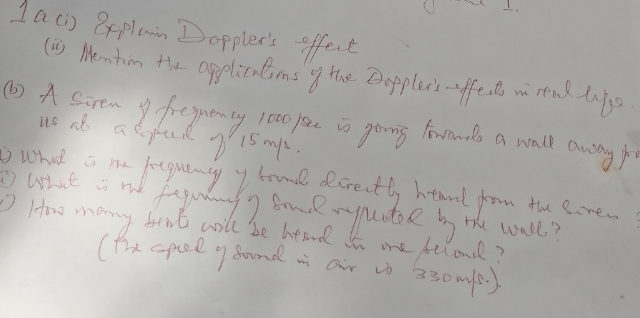 1a (i) Explain Doppler's effect
(ii) Mention the applications of the Doppler's effects in real life.
(b) A Siren of frequency 1000/sec is going towards a wall away
us at a speed of 15m/s.
i) What is the frequency of sound directly heard from the Siren
ii) What is the frequency of sound reflected by the wall?
How many beats will be heard in one second?
(The speed of sound in air is 330m/s.)